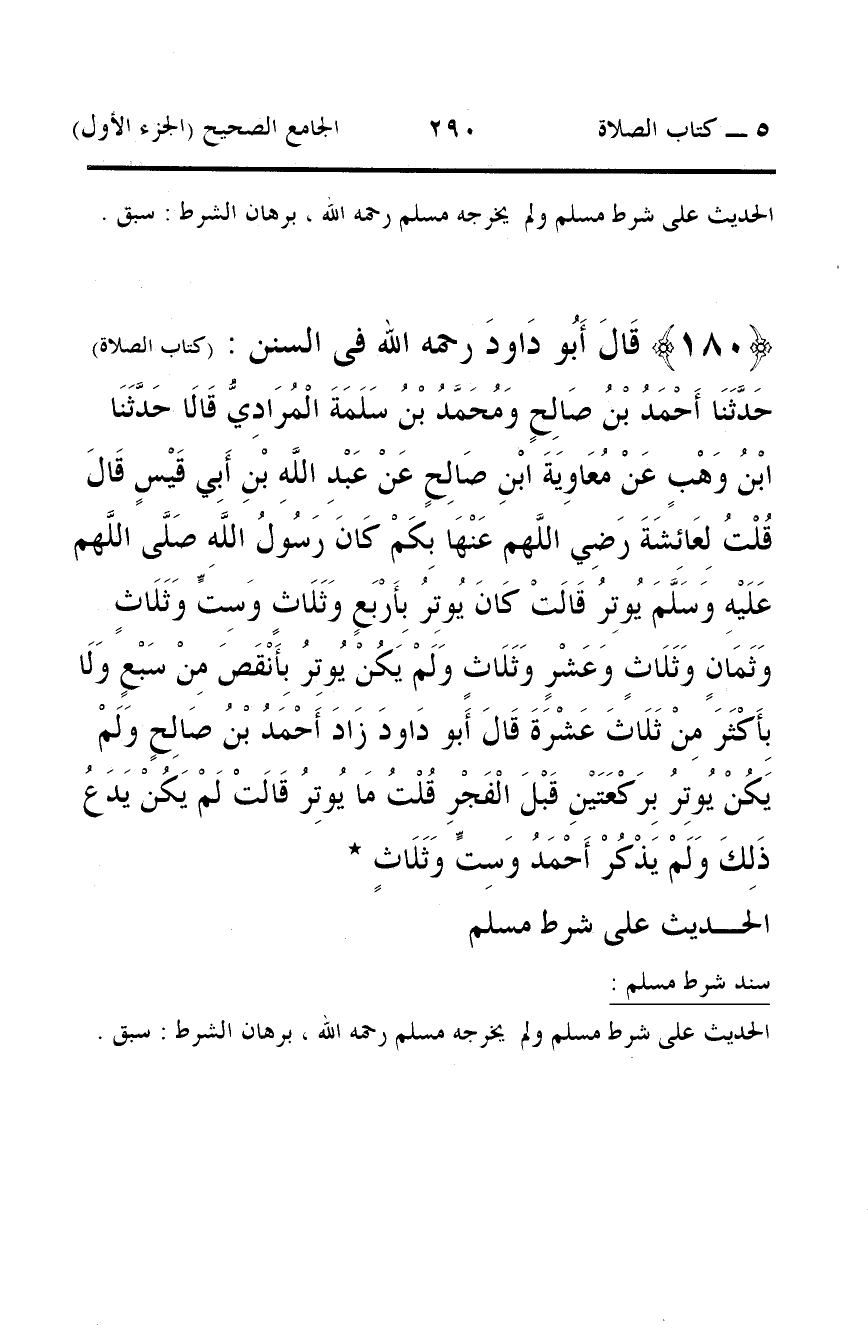 ٥ ــ كتاب الصلاة ٢٩٠ الجامع الصحيح (الجزء الأول)
الحديث على شرط مسلم ولم يخرجه مسلم رحمه الله ، برهان الشرط : سبق .
﴿١٨٠﴾ قَالَ أَبُو دَاودَ رحمه الله فى السنن : (كتاب الصلاة)
حَدَّثَنَا أَحْمَدُ بْنُ صَالِحٍ وَمُحَمَّدُ بْنُ سَلَمَةَ الْمُرَادِيُّ قَالَا حَدَّثَنَا
ابْنُ وَهْبٍ عَنْ مُعَاوِيَةَ ابْنِ صَالِحٍ عَنْ عَبْدِ اللَّهِ بْنِ أَبِي قَيْسٍ قَالَ
قُلْتُ لِعَائِشَةَ رَضِي اللَّهم عَنْهَا بِكَمْ كَانَ رَسُولُ اللَّهِ صَلَّى اللَّهم
عَلَيْهِ وَسَلَّمَ يُوتِرُ قَالَتْ كَانَ يُوتِرُ بِأَرْبَعٍ وَثَلَاثٍ وَسِتٍّ وَثَلَاثٍ
وَثَمَانٍ وَثَلَاثٍ وَعَشْرٍ وَثَلَاثٍ وَلَمْ يَكُنْ يُوتِرُ بِأَنْقَصَ مِنْ سَبْعٍ وَلَا
بِأَكْثَرَ مِنْ ثَلَاثَ عَشْرَةَ قَالَ أَبو دَاودَ زَادَ أَحْمَدُ بْنُ صَالِحٍ وَلَمْ
يَكُنْ يُوتِرُ بِرَكْعَتَيْنِ قَبْلَ الْفَجْرِ قُلْتُ مَا يُوتِرُ قَالَتْ لَمْ يَكُنْ يَدَعُ
ذَلِكَ وَلَمْ يَذْكُرْ أَحْمَدُ وَسِتٍّ وَثَلَاثٍ *
الحـــديث على شرط مسلم
سند شرط مسلم :
الحديث على شرط مسلم ولم يخرجه مسلم رحمه الله ، برهان الشرط : سبق .